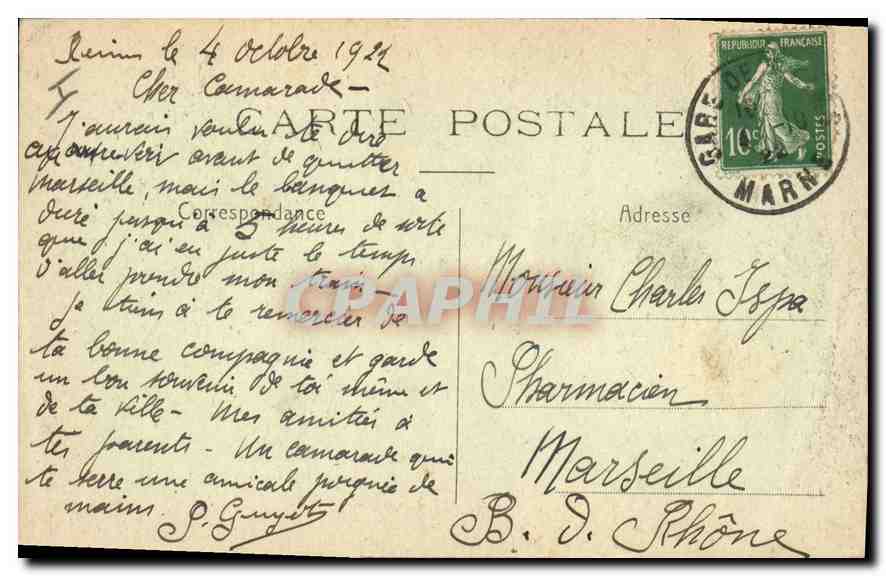 Reims le 4 Octobre 1922
Cher Camarade -
CARTE POSTALE
J'aurais voulu te dire
au revoir avant de quitter
Marseille, mais le banquet a
duré jusqu'à 5 heures de sorte
que j'ai eu juste le temps
d'aller prendre mon train -
Je tiens à te remercier de
ta bonne compagnie et garde
un bon souvenir de toi même et
de ta ville - Mes amitiés à
tes parents - Un camarade qui
te serre une amicale poignée de
mains
P. Guyot
Correspondance
Adresse
Monsieur Charles Ispa
Pharmacien
Marseille
B. d. Rhône
REPUBLIQUE FRANÇAISE
10c
POSTES
GARE DE
22
MARNE
CPAPHIL